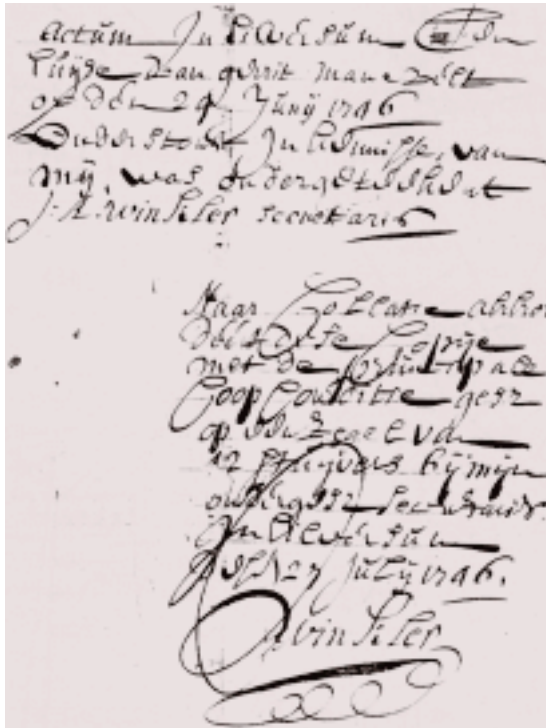 Actum In Hilversum den
huijse van gerrit
op den 29 Junij 1796
Onderstont In kennisse, van
mij, was ondergeteekent
J: A. winkler secretaris
Naar Collatie
deese Copije
met de principale
Coop Conditie gesz
op een Zegel van
12 stuijvers bij mijn
ondergesz secretaris
In Hilversum
den 27 Julij 1796.
winkler